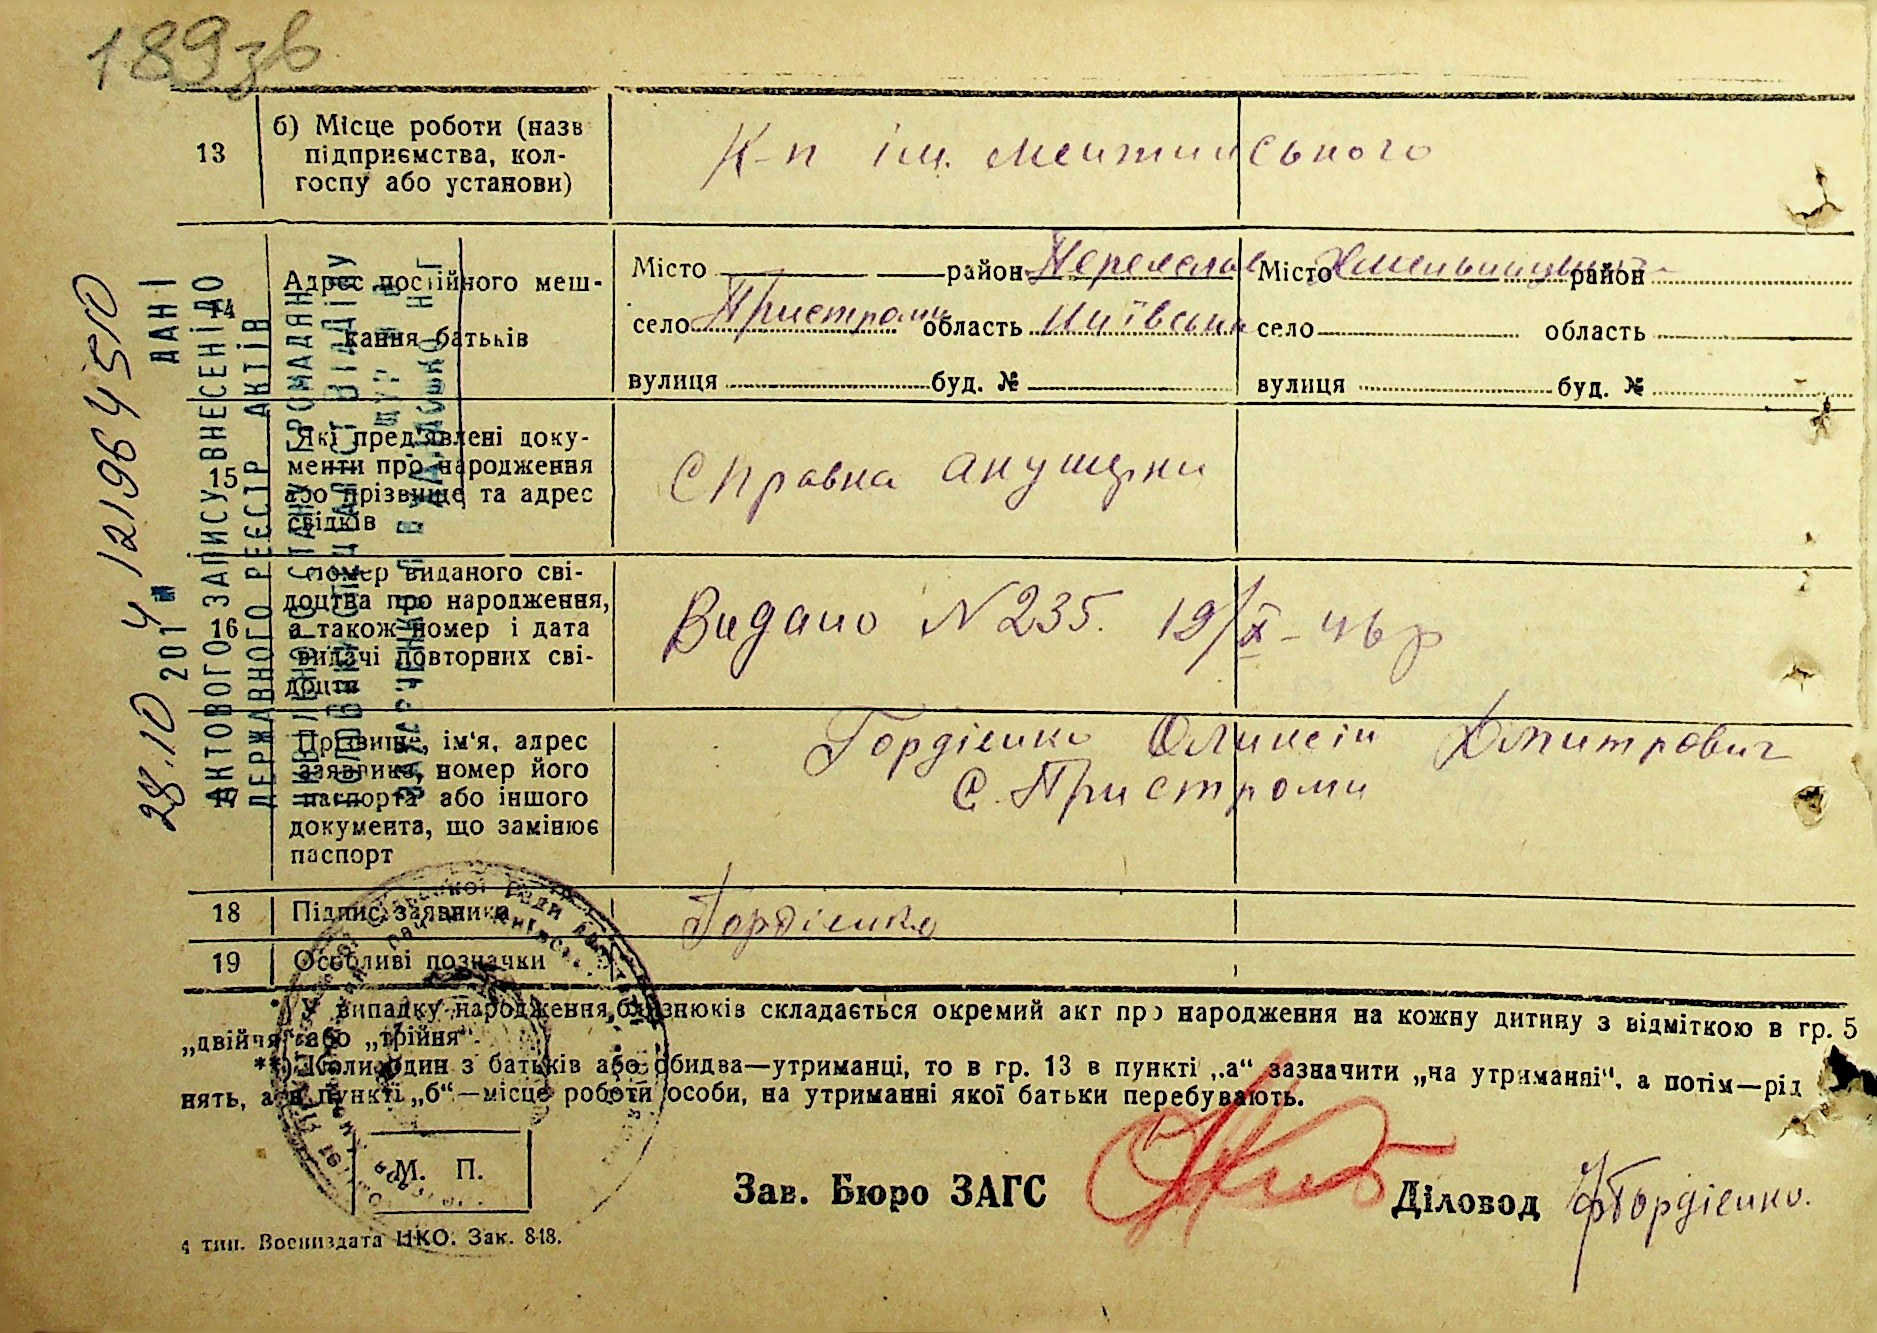 189зв
13
б) Місце роботи (назв
підприємства, кол-
госпу або установи)
К-п ім. Менжинського
14
Адрес постійного меш-
кання батьків
Місто район Переяслав Місто Хмельницький район
село Пристроми область Київська село область
вулиця буд. № вулиця буд. №
15
Які пред'явлені доку-
менти про народження
або прізвище та адрес
свідків
Справка акушерки
16
Номер виданого сві-
доцтва про народження,
а також номер і дата
видачі повторних сві-
доцтв
Видано № 235. 19/X-46 р
17
Прізвище, ім'я, адрес
заявника, номер його
паспорта або іншого
документа, що замінює
паспорт
Гордієнко Оликсій Дмитрович
С. Пристроми
18 Підпис заявника Гордієнко
19 Особливі позначки
*) У випадку народження близнюків складається окремий акт про народження на кожну дитину з відміткою в гр. 5
„двійня" або „трійня".
**) Коли один з батьків або обидва—утриманці, то в гр. 13 в пункті „а" зазначити „на утриманні", а потім—рід
нять, а в пункті „б"—місце роботи особи, на утриманні якої батьки перебувають.
М. П.
Зав. Бюро ЗАГС
Діловод Гордієнко.
4 тип. Воениздата НКО. Зак. 848.
28.10 2014 12196 4510
ДАНІ
АКТОВОГО ЗАПИСУ ВНЕСЕНІ ДО
ДЕРЖАВНОГО РЕЄСТР АКТІВ
ЦИВІЛЬНОГО СТАНУ ГРОМАДЯН